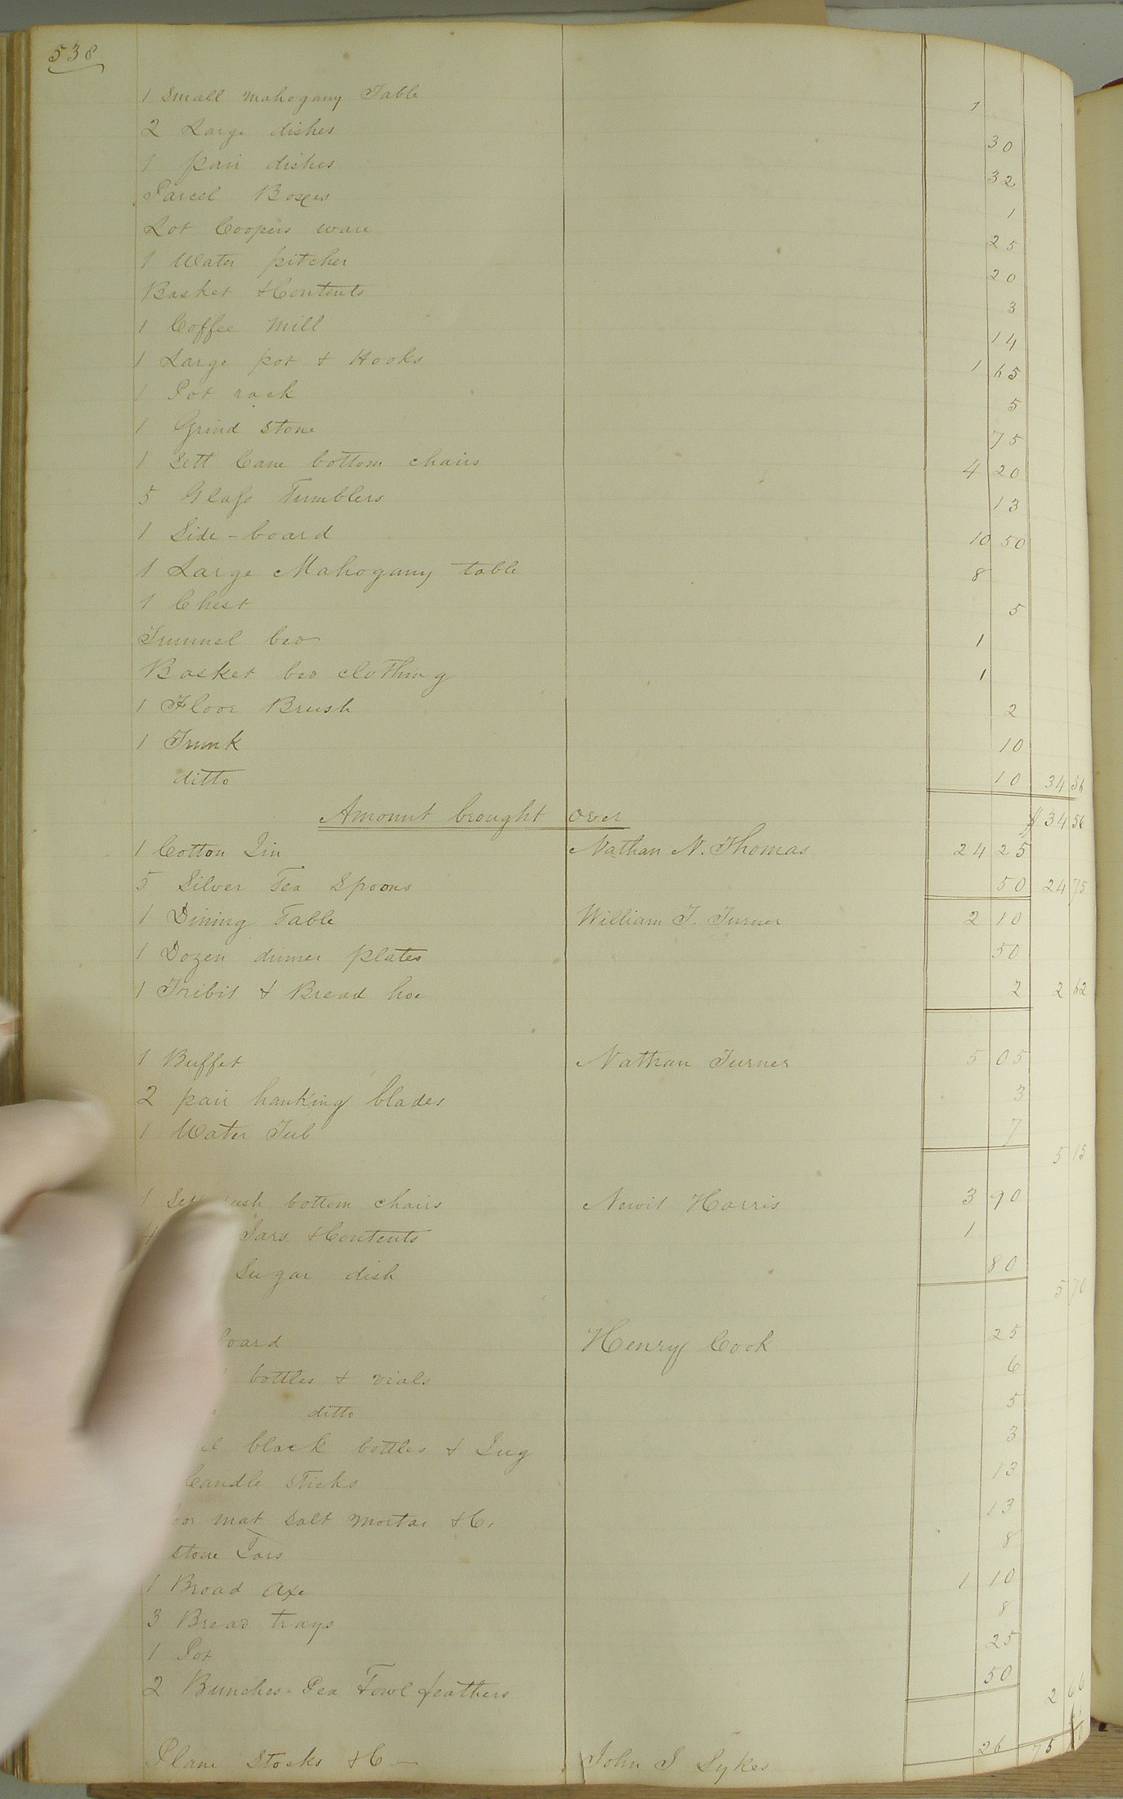 538
1 Small Mahogany Table 1
2 Large dishes 30
1 pair dishes 32
Parcel Boxes 1
Lot Coopers ware 25
1 Water pitcher 20
Basket & Contents 3
1 Coffee Mill 14
1 Large pot & Hooks 1 65
1 Pot rack 5
1 Grind Stone 75
1 Sett Cane bottom chairs 4 20
5 Glass Tumblers 13
1 Side-board 10 50
1 Large Mahogany table 8
1 Chest 5
Trunnel bed 1
Basket bed clothing 1
1 Floor Brush 2
1 Trunk 10
ditto 10 34 56
Amount brought over $ 34 56
1 Cotton Gin Nathan N. Thomas 24 25
5 Silver Tea Spoons 50 24 75
1 Dining Table William T. Turner 2 10
1 Dozen dinner plates 50
1 Tribit & Bread hoe 2 2 62
1 Buffet Nathan Turner 5 05
2 pair hanking blades 3
1 Water Tub 7
5 15
1 Sett rush bottom chairs Newit Harris 3 90
Jars & Contents 1
Sugar dish 80
5 70
board Henry Cook 25
bottles & vials 6
ditto 5
black bottles & Jug 3
Candle Sticks 13
mat Salt Mortar &C. 13
Stone Jars 8
1 Broad Axe 1 10
3 Bread trays 8
1 Pot 25
2 Bunches Pea Fowl feathers 50
2 66
Plane Stocks &C John S Sykes 26 75